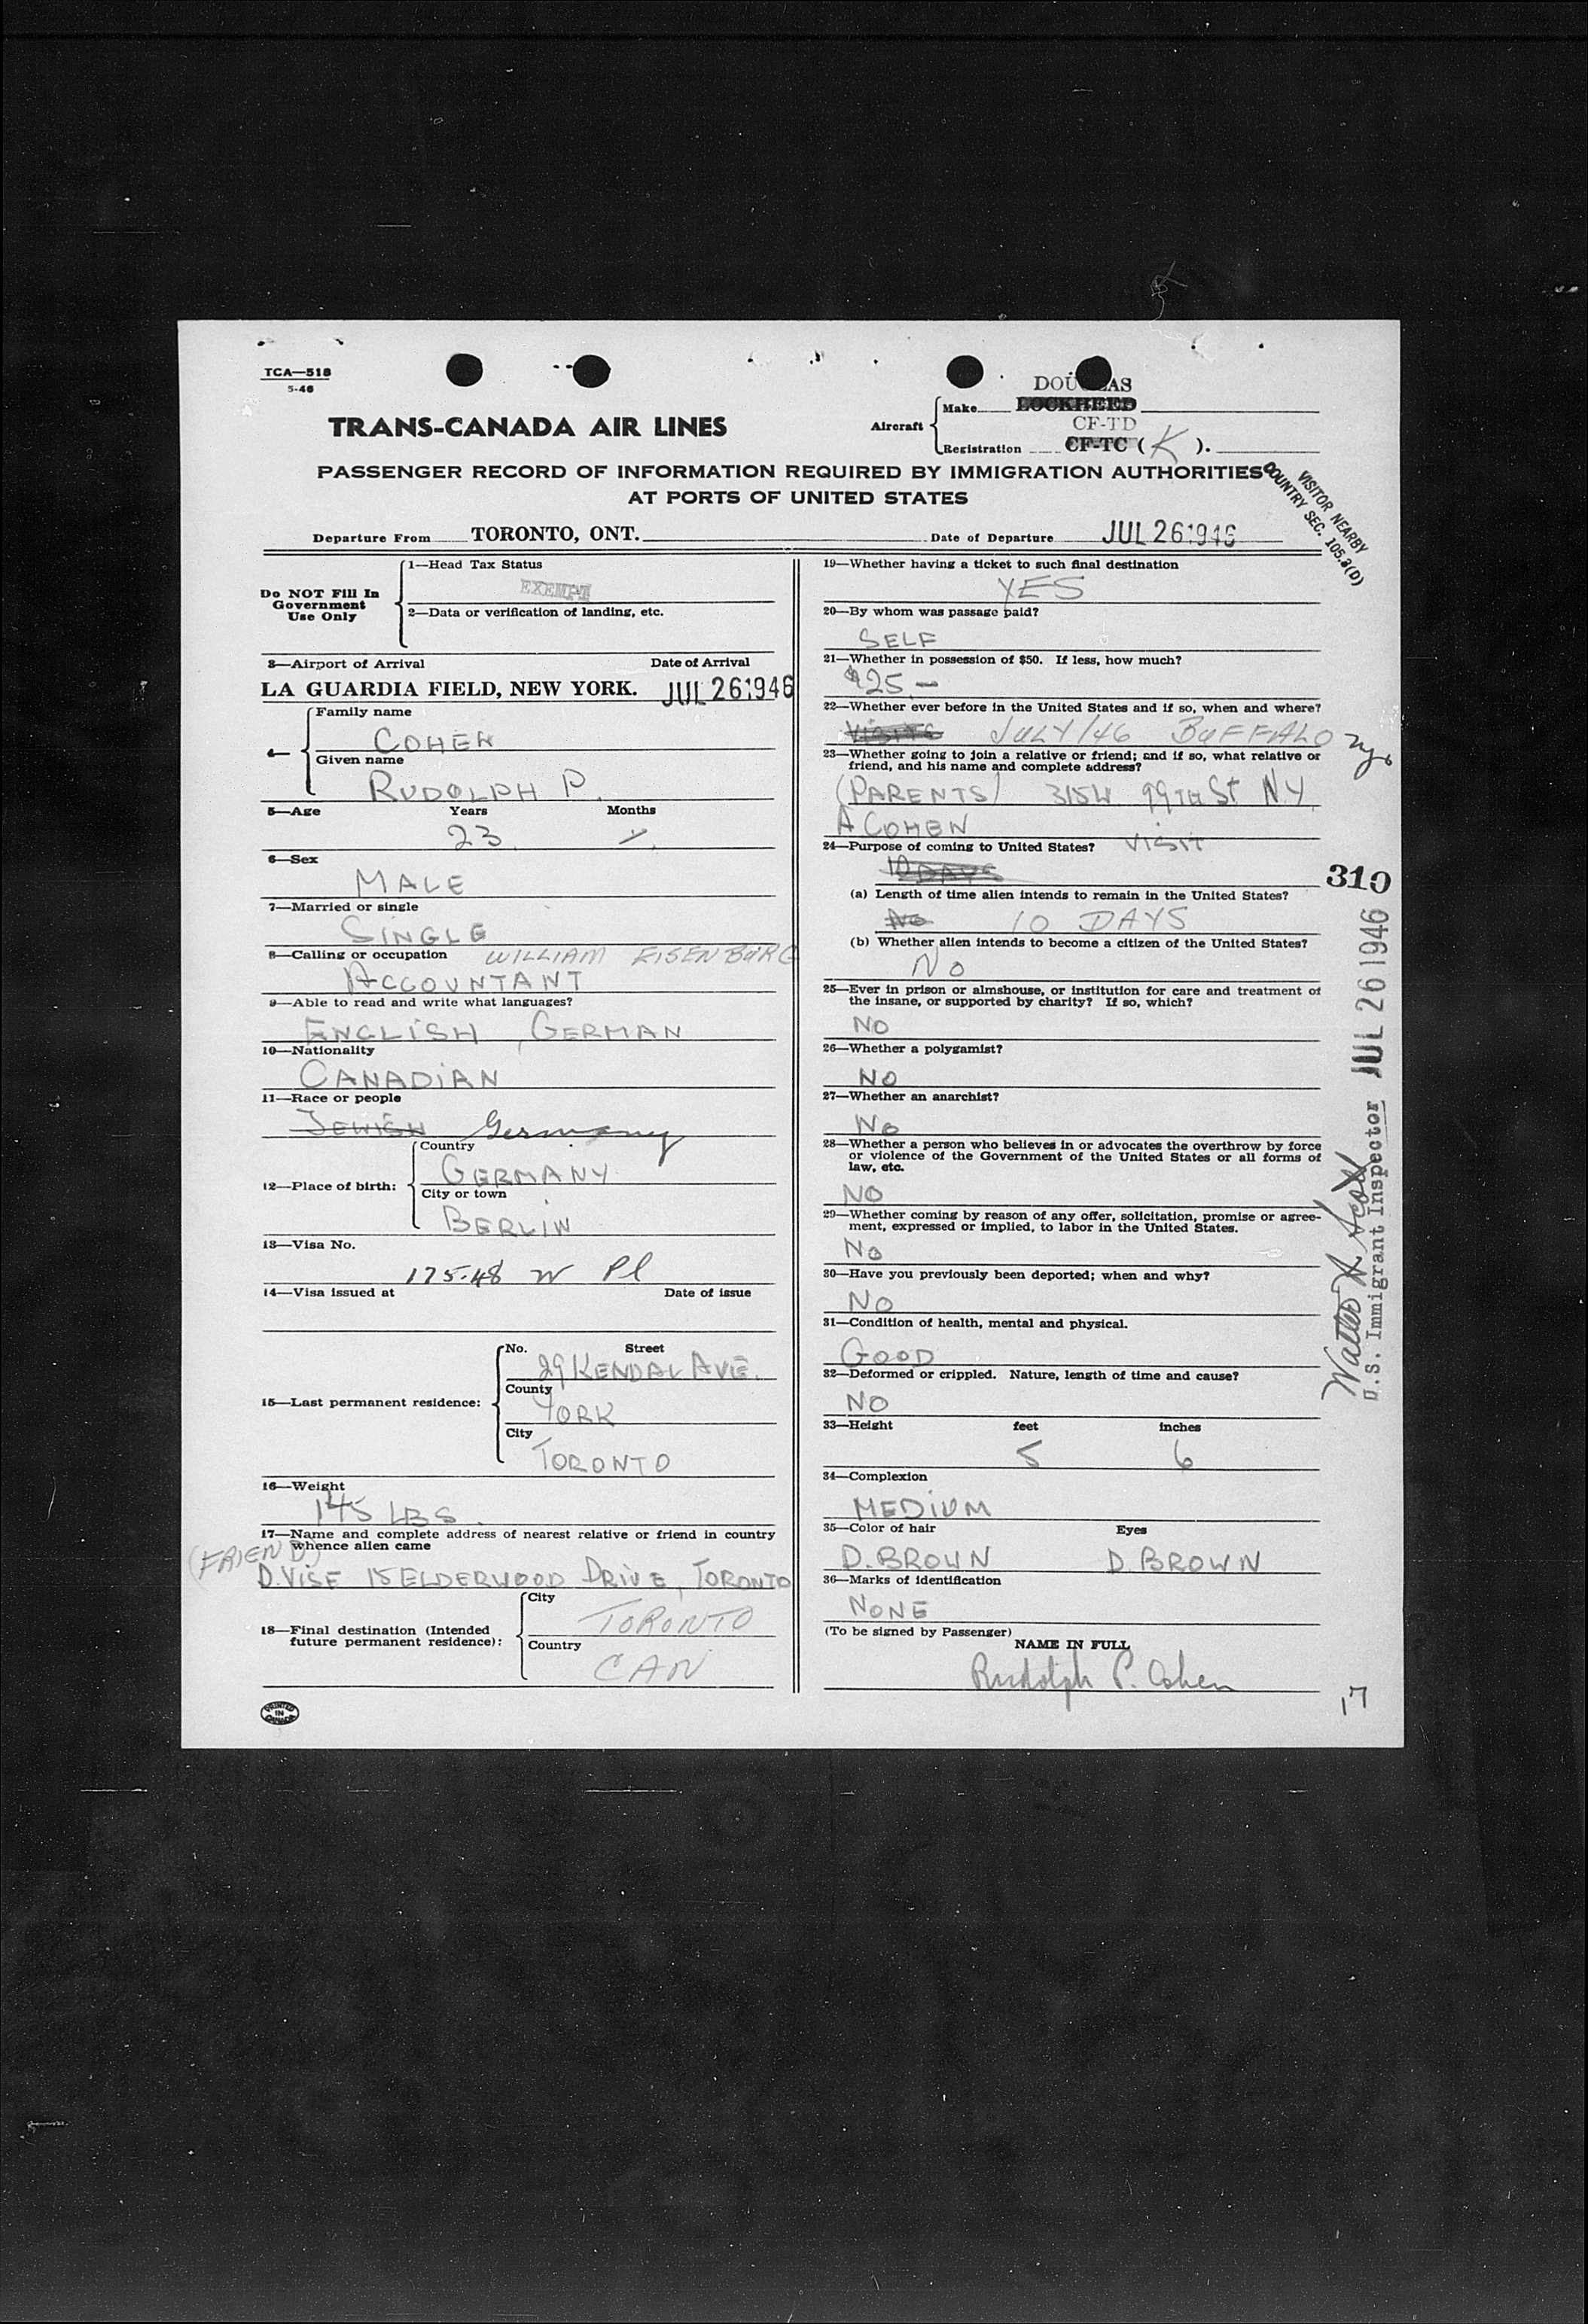 TCA—518
5-46
DOUGLAS
Aircraft
Make
LOCKHEED
CF-TD
Registration
CF-TC ( K ).
TRANS-CANADA AIR LINES
PASSENGER RECORD OF INFORMATION REQUIRED BY IMMIGRATION AUTHORITIES
AT PORTS OF UNITED STATES
VISITOR NEARBY
COUNTRY SEC. 105.3(D)
Departure From TORONTO, ONT. Date of Departure JUL 26 1946
Do NOT Fill In
Government
Use Only
1—Head Tax Status
EXEMPT
2—Data or verification of landing, etc.
3—Airport of Arrival Date of Arrival
LA GUARDIA FIELD, NEW YORK. JUL 26 1946
4—
Family name
COHEN
Given name
RUDOLPH P.
5—Age Years Months
23
6—Sex
MALE
7—Married or single
SINGLE
8—Calling or occupation WILLIAM EISENBURG
ACCOUNTANT
9—Able to read and write what languages?
ENGLISH, GERMAN
10—Nationality
CANADIAN
11—Race or people
JEWISH Germany
12—Place of birth:
Country
GERMANY
City or town
BERLIN
13—Visa No.
175-48 W Pl
14—Visa issued at Date of issue
15—Last permanent residence:
No. Street
29 KENDAL AVE.
County
YORK
City
TORONTO
16—Weight
145 LBS.
17—Name and complete address of nearest relative or friend in country
whence alien came
(FRIEND)
D. VISE 15 ELDERWOOD DRIVE, TORONTO
18—Final destination (Intended
future permanent residence):
City
TORONTO
Country
CAN
PRINTED
IN
CANADA
19—Whether having a ticket to such final destination
YES
20—By whom was passage paid?
SELF
21—Whether in possession of $50. If less, how much?
$25.—
22—Whether ever before in the United States and if so, when and where?
VISITS JULY/46 BUFFALO NY
23—Whether going to join a relative or friend; and if so, what relative or
friend, and his name and complete address?
(PARENTS) 315W 99TH St NY
A COHEN
24—Purpose of coming to United States? VISIT
10 DAYS
(a) Length of time alien intends to remain in the United States?
No 10 DAYS
(b) Whether alien intends to become a citizen of the United States?
NO
25—Ever in prison or almshouse, or institution for care and treatment of
the insane, or supported by charity? If so, which?
NO
26—Whether a polygamist?
NO
27—Whether an anarchist?
No
28—Whether a person who believes in or advocates the overthrow by force
or violence of the Government of the United States or all forms of
law, etc.
NO
29—Whether coming by reason of any offer, solicitation, promise or agree-
ment, expressed or implied, to labor in the United States.
No
30—Have you previously been deported; when and why?
NO
31—Condition of health, mental and physical.
GOOD
32—Deformed or crippled. Nature, length of time and cause?
NO
33—Height feet inches
5 6
34—Complexion
MEDIUM
35—Color of hair Eyes
D. BROWN D. BROWN
36—Marks of identification
NONE
(To be signed by Passenger)
NAME IN FULL
Rudolph P. Cohen
310
JUL 26 1946
Walter H. Scott
U.S. Immigrant Inspector
17